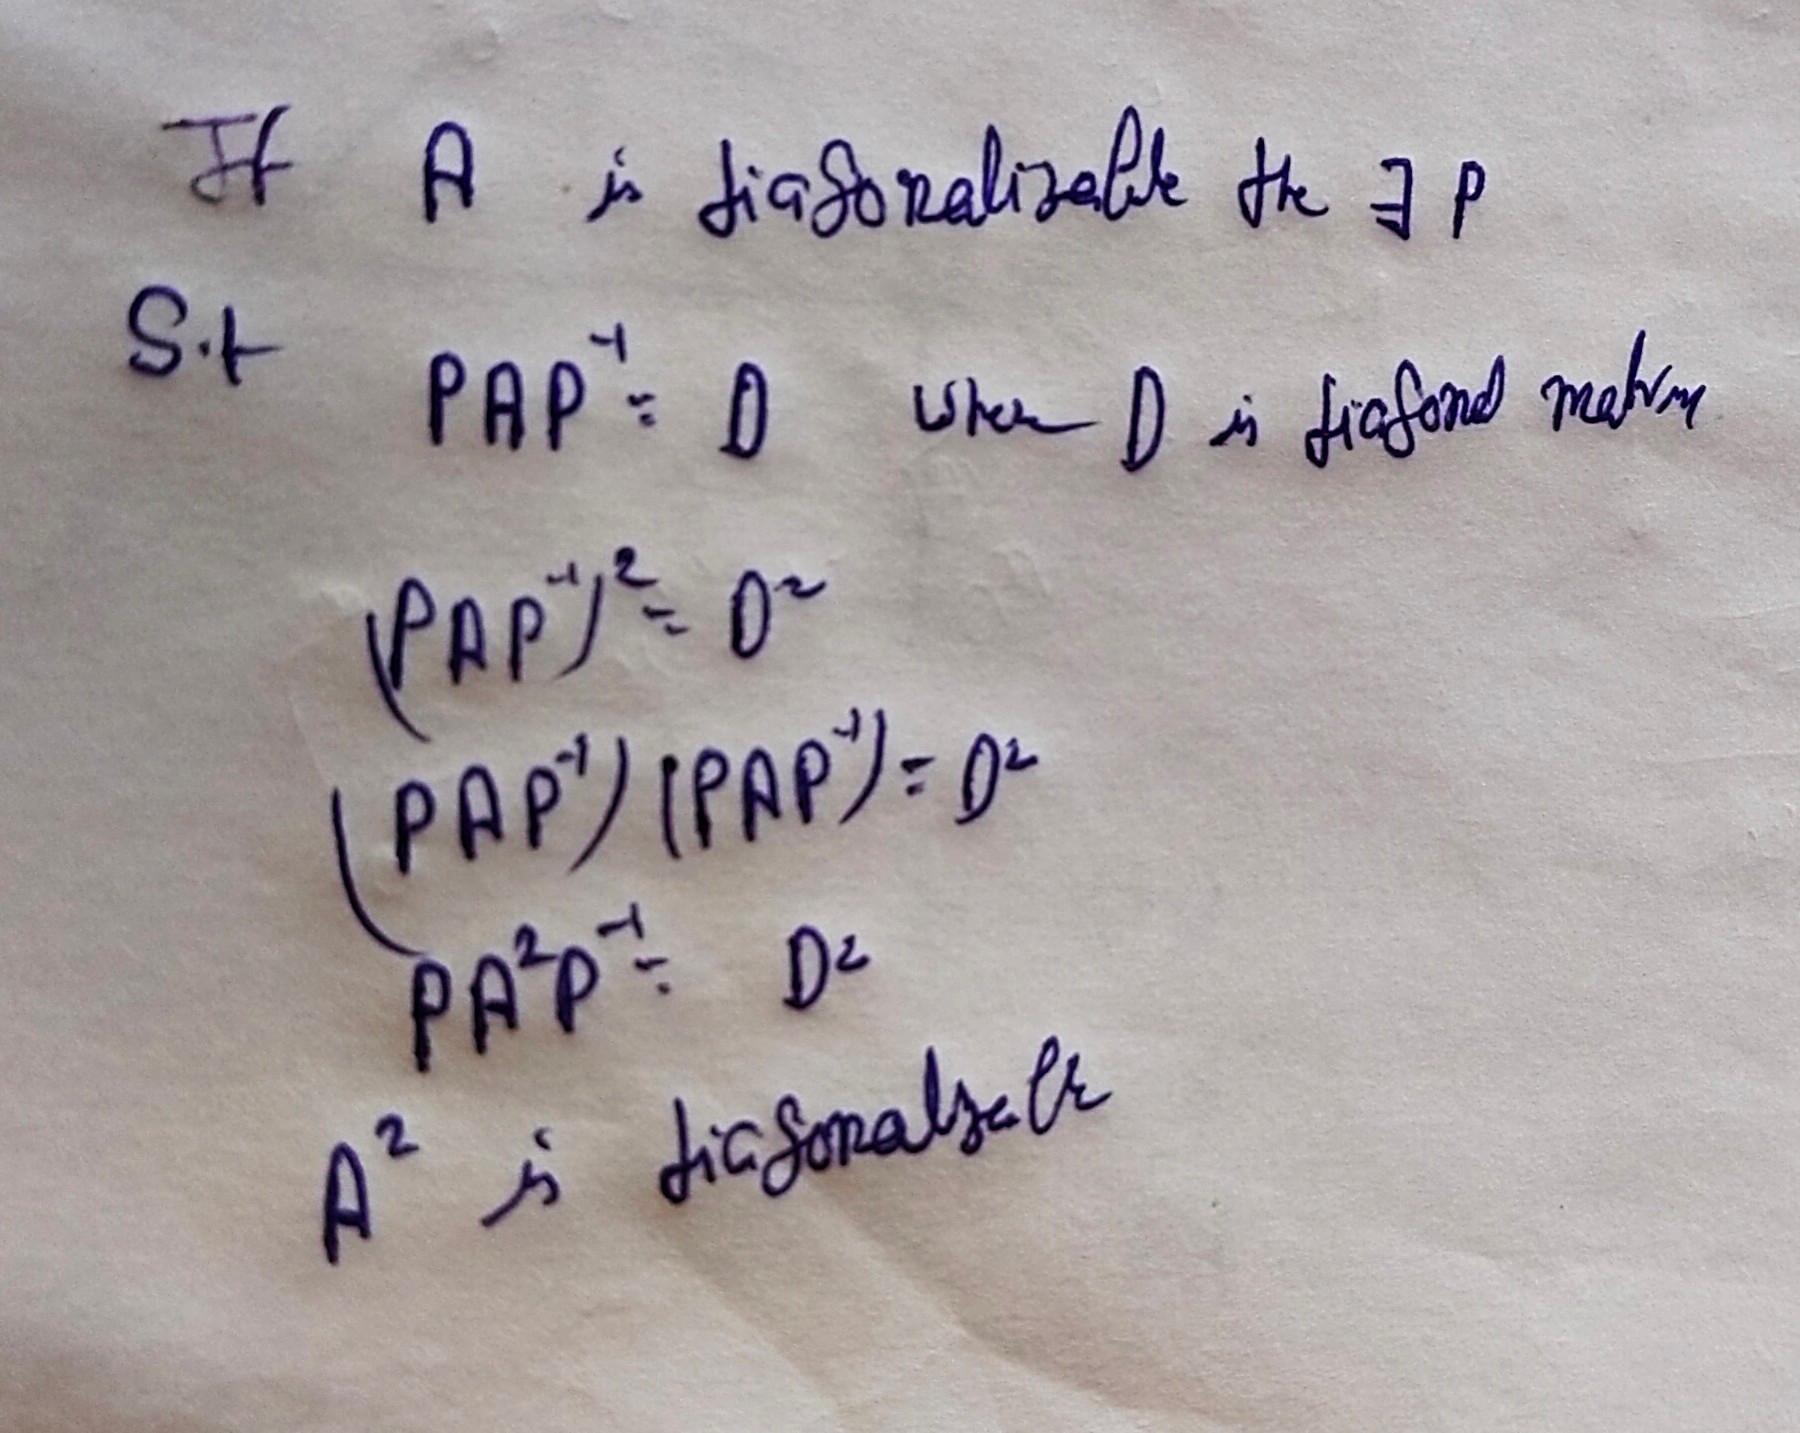 If A is diagonalizable the ∃ P
S.t PAP⁻¹ = D when D is diagonal matrix
(PAP⁻¹)² = D²
(PAP⁻¹) (PAP⁻¹) = D²
PA²P⁻¹ = D²
A² is diagonalzable